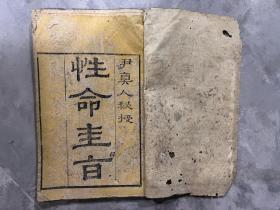 尹真人秘授
性命圭旨